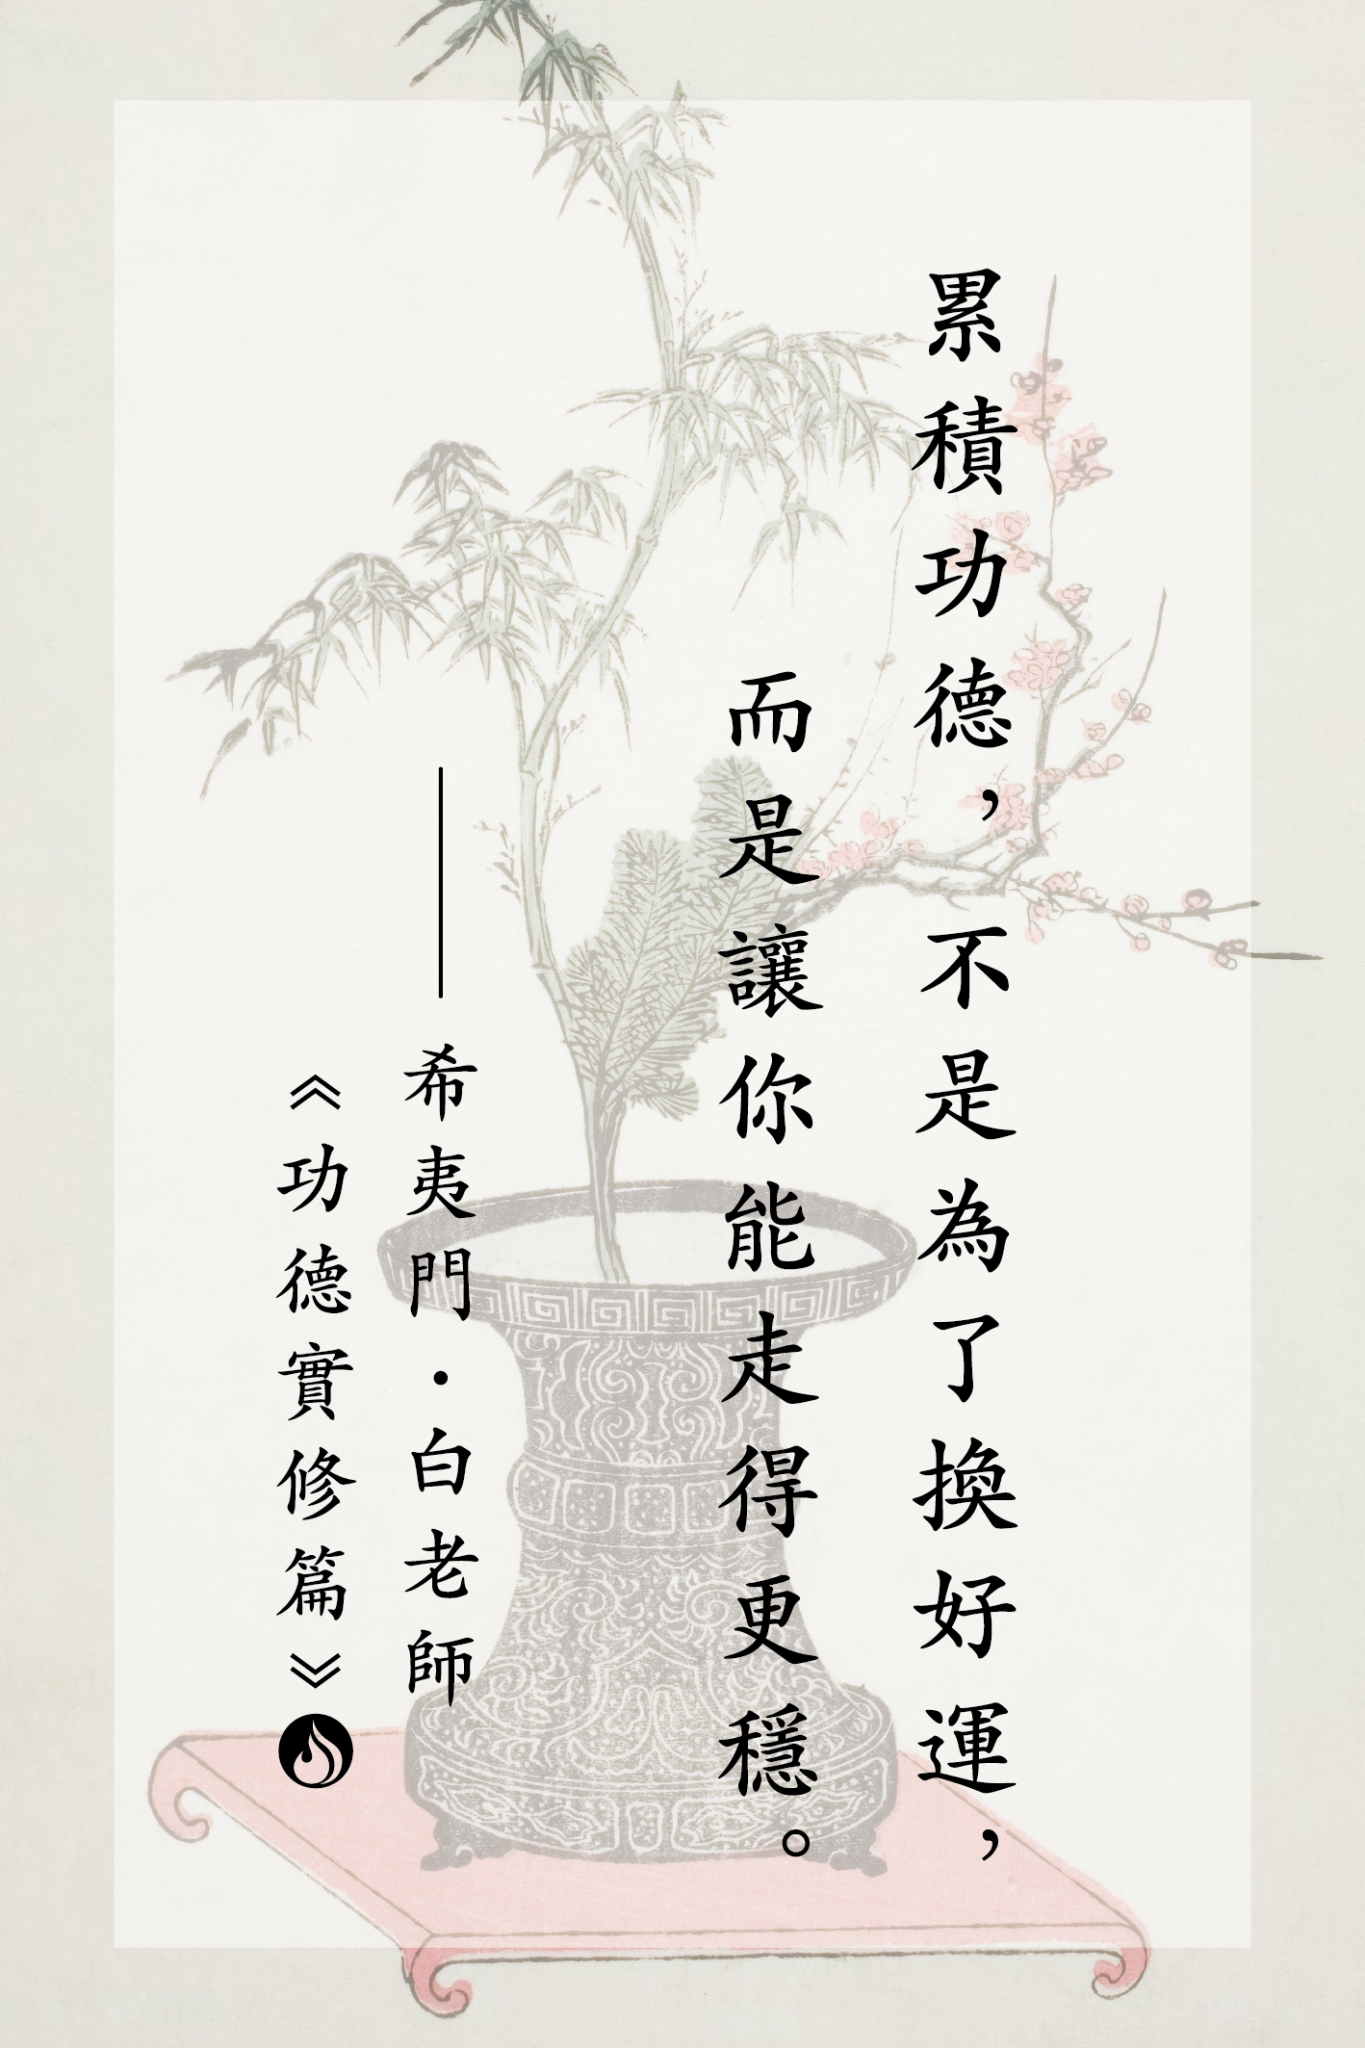 累積功德，不是為了換好運，
而是讓你能走得更穩。
——希夷門·白老師
《功德實修篇》